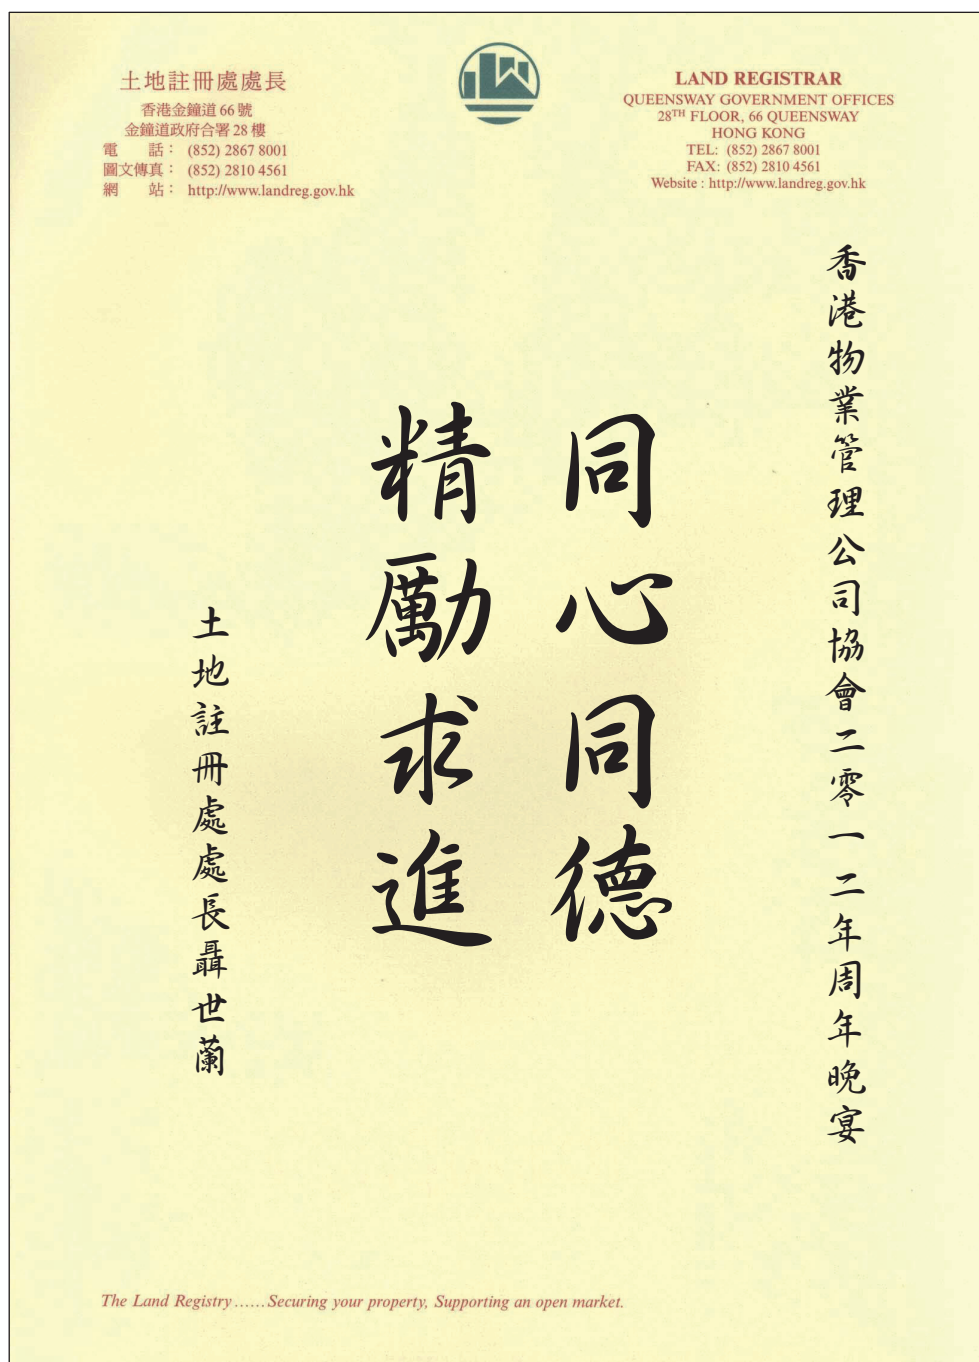 土地註冊處處長
香港金鐘道 66 號
金鐘道政府合署 28 樓
電 話： (852) 2867 8001
圖文傳真： (852) 2810 4561
網 站： http://www.landreg.gov.hk
LAND REGISTRAR
QUEENSWAY GOVERNMENT OFFICES
28TH FLOOR, 66 QUEENSWAY
HONG KONG
TEL: (852) 2867 8001
FAX: (852) 2810 4561
Website : http://www.landreg.gov.hk
香港物業管理公司協會二零一二年周年晚宴
同心同德
精勵求進
土地註冊處處長聶世蘭
The Land Registry ...... Securing your property, Supporting an open market.